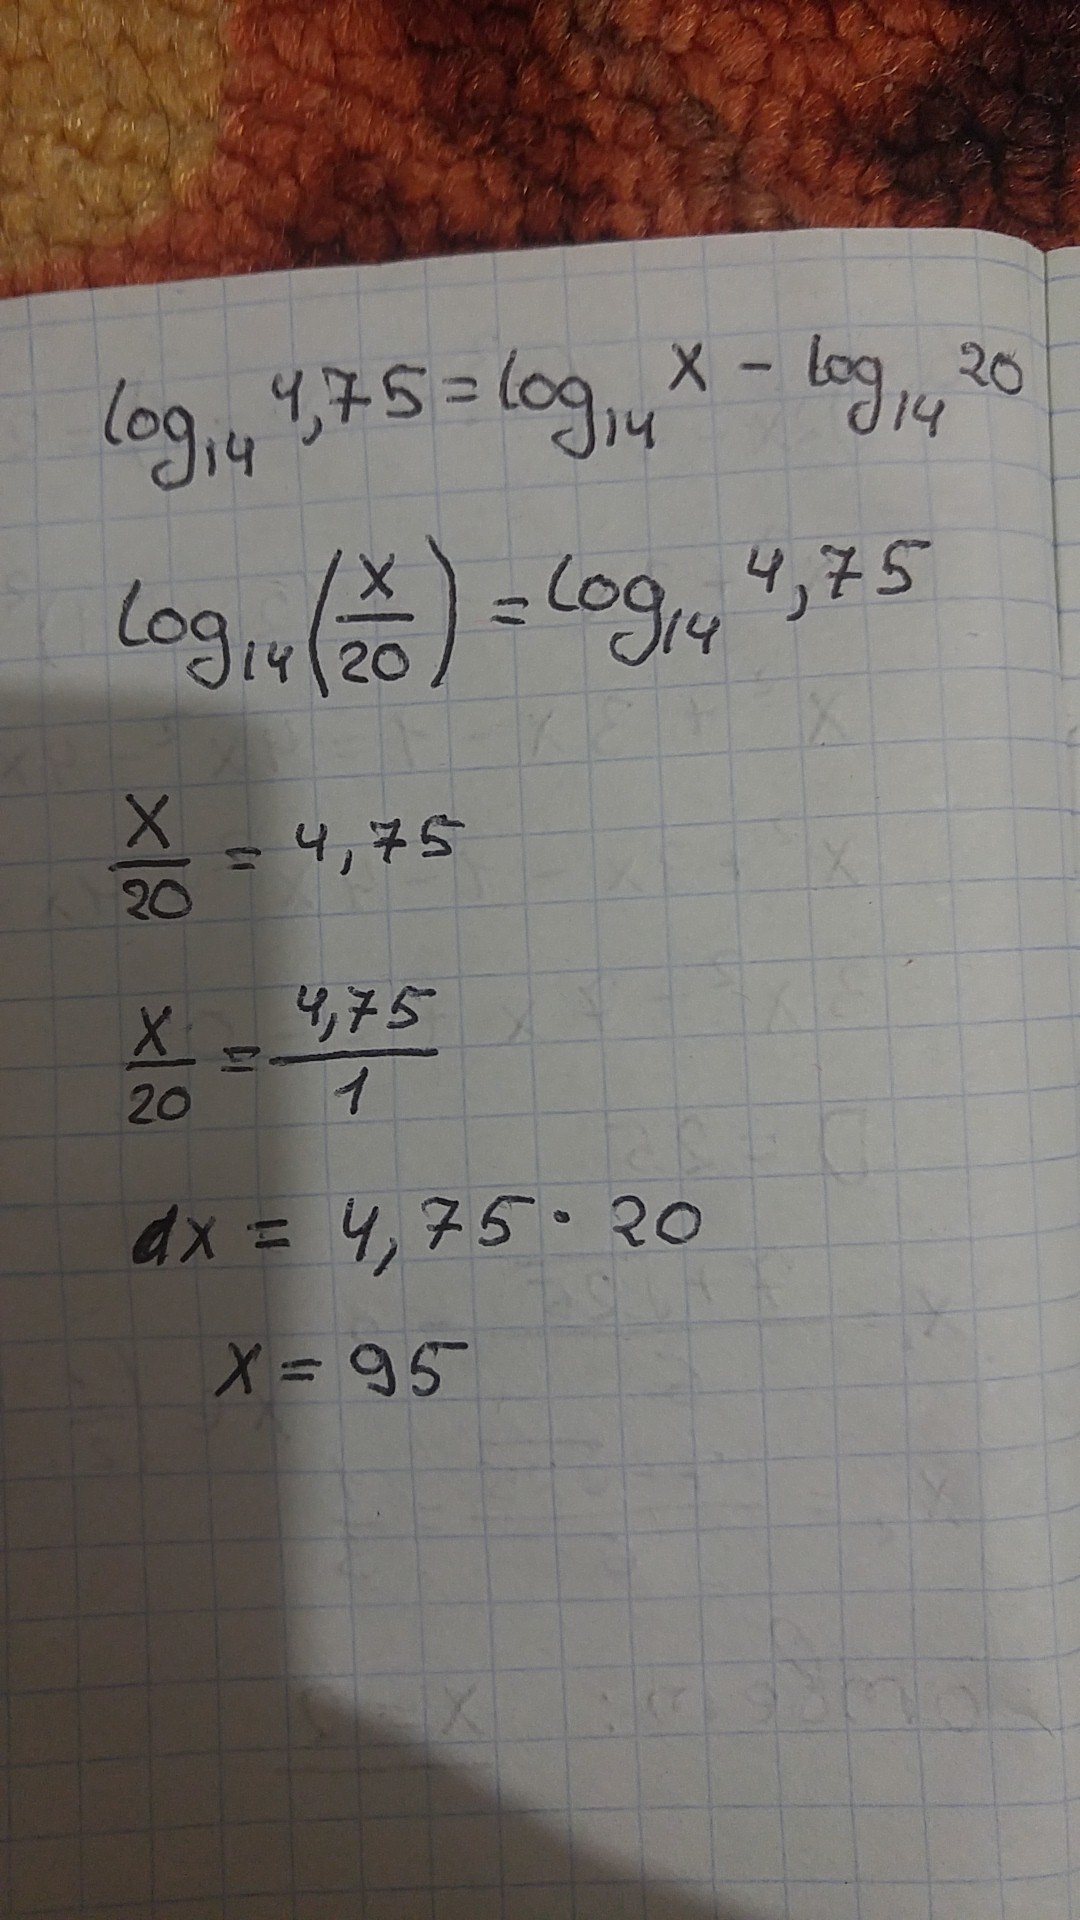 log₁₄ 4,75 = log₁₄ x - log₁₄ 20
log₁₄ (x/20) = log₁₄ 4,75
x/20 = 4,75
x/20 = 4,75/1
x = 4,75 · 20
x = 95